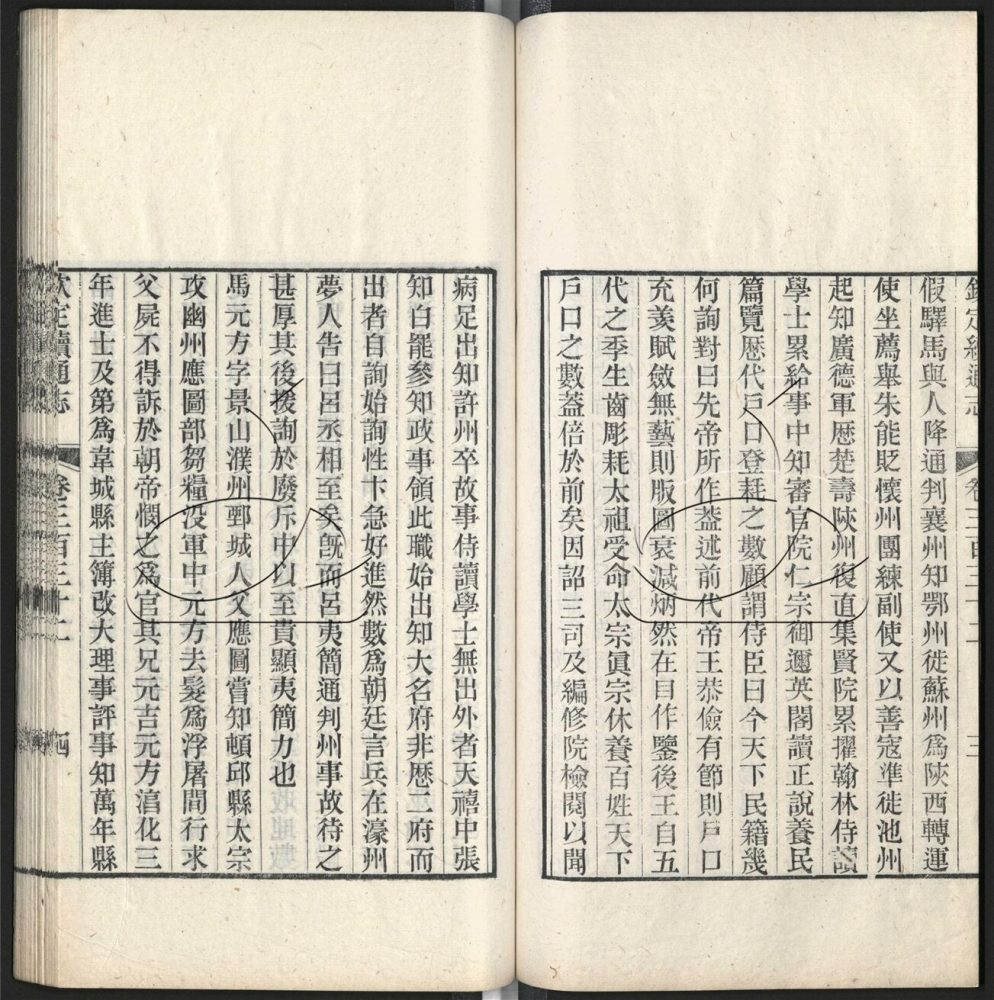 欽定續通志 卷三百三十二 三
假驛馬與人降通判襄州知鄂州徙蘇州爲陝西轉運
使坐薦舉朱能貶懷州團練副使又以善寇準徙池州
起知廣德軍歷楚壽陝州復直集賢院累擢翰林侍讀
學士累給事中知審官院仁宗御邇英閣讀正說養民
篇覽歷代戶口登耗之數顧謂侍臣曰今天下民籍幾
何詢對曰先帝所作蓋述前代帝王恭儉有節則戶口
充羡賦斂無藝則版圖衰減炳然在目作鑒後王自五
代之季生齒彫耗太祖受命太宗眞宗休養百姓天下
戶口之數蓋倍於前矣因詔三司及編修院檢閱以聞
病足出知許州卒故事侍讀學士無出外者天禧中張
知白罷參知政事領此職始出知大名府非歷二府而
出者自詢始詢性卞急好進然數爲朝廷言兵在濠州
夢人告曰呂丞相至矣旣而呂夷簡通判州事故待之
甚厚其後援詢於廢斥中以至貴顯夷簡力也
馬元方字景山濮州鄄城人父應圖嘗知頓邱縣太宗
攻幽州應圖部芻糧没軍中元方去髮爲浮屠間行求
父屍不得訴於朝帝憫之爲官其兄元吉元方淯化三
年進士及第爲韋城縣主簿改大理事評事知萬年縣
欽定續通志 卷三百三十二 四